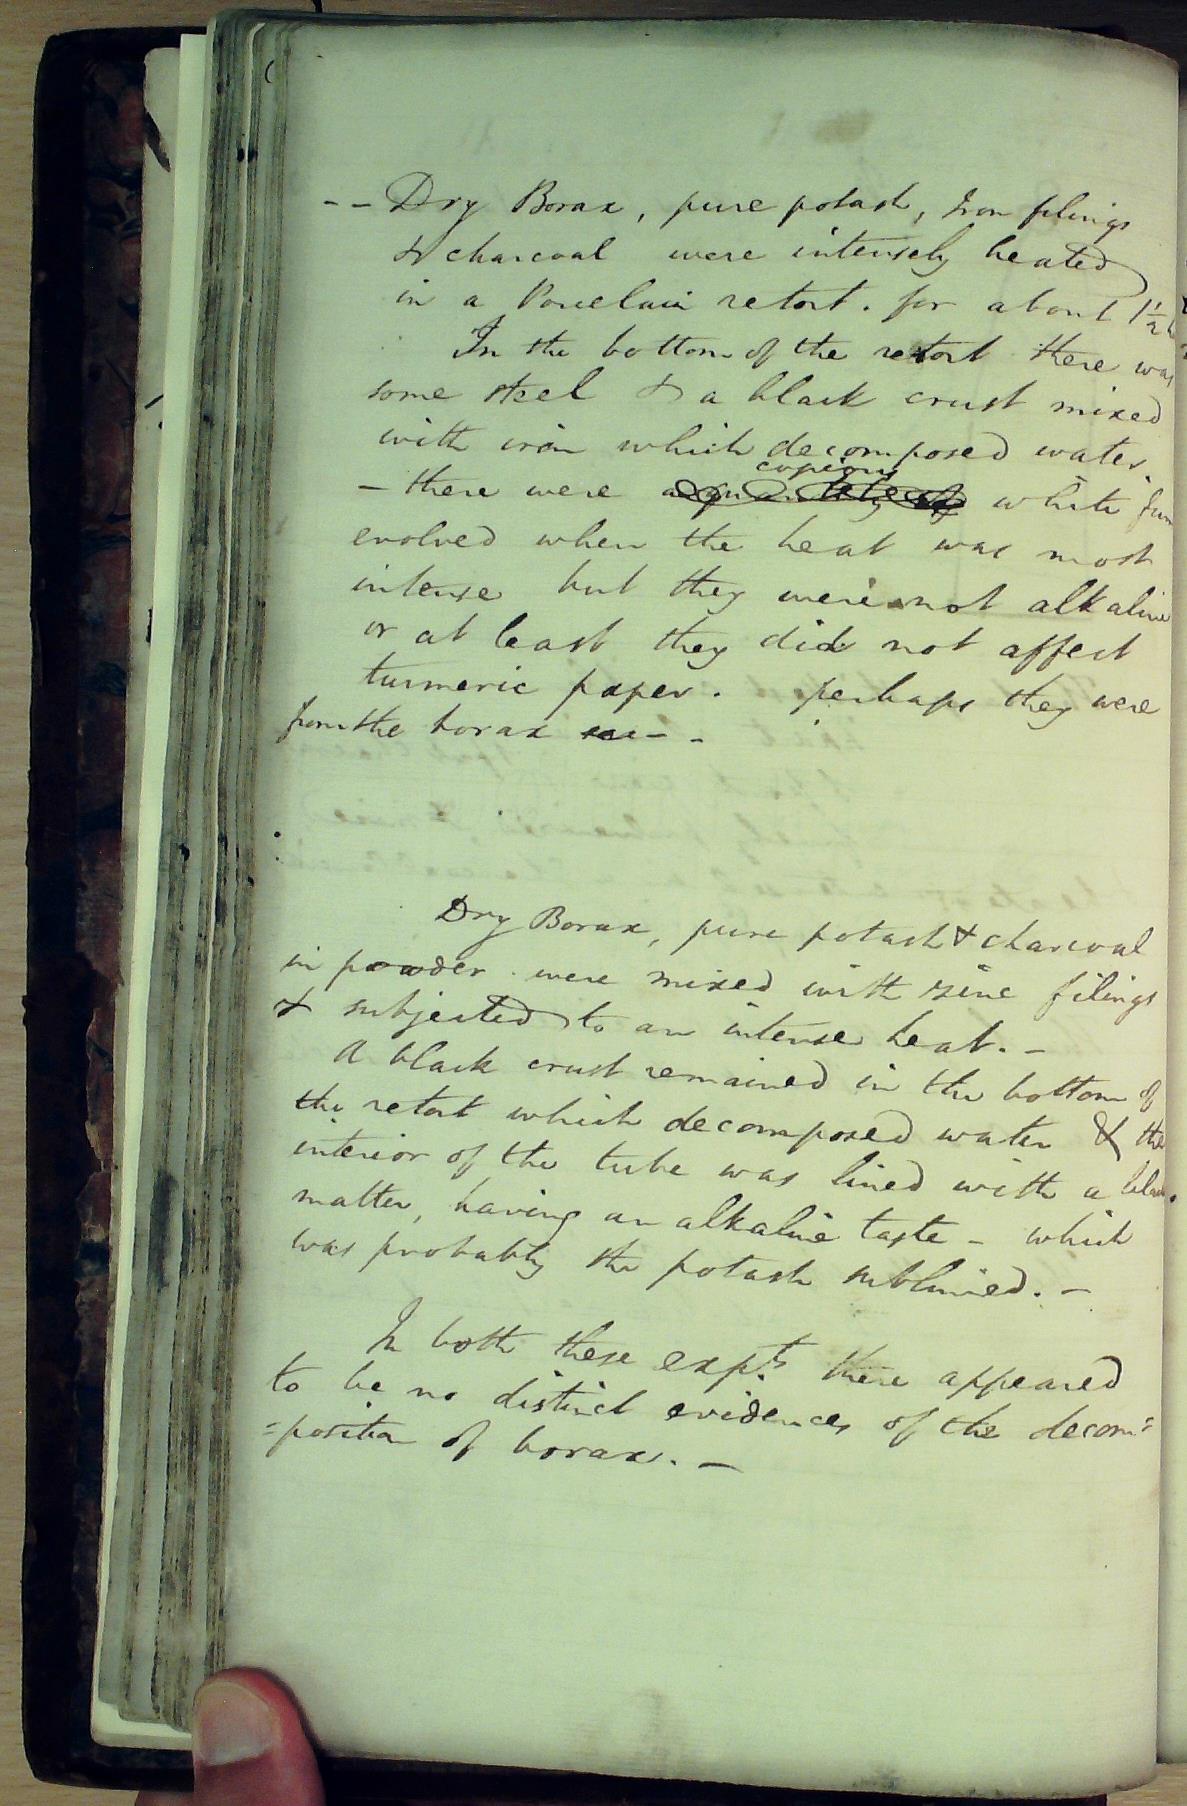 -- Dry Borax, pure potash, Iron filings
& charcoal were intensely heated
in a Porcelain retort. for about 1½ h
In the bottom of the retort there was
some steel & a black crust mixed
with iron which decomposed water.
copious
- there were a quantity of white fum
evolved when the heat was most
intense but they were not alkaline
or at least they did not affect
turmeric paper. perhaps they were
from the borax - -
Dry Borax, pure potash & charcoal
in powder were mixed with zinc filings
& subjected to an intense heat. -
A black crust remained in the bottom of
the retort which decomposed water & the
interior of the tube was lined with a
matter, having an alkaline taste - which
was probably the potash sublimed. -
In both these expts. there appeared
to be no distinct evidences of the decom=
=position of borax. -